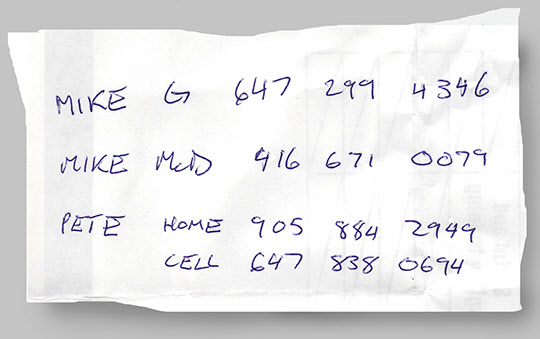 MIKE G 647 299 4346
MIKE McD 416 671 0079
PETE HOME 905 884 2949
CELL 647 838 0694